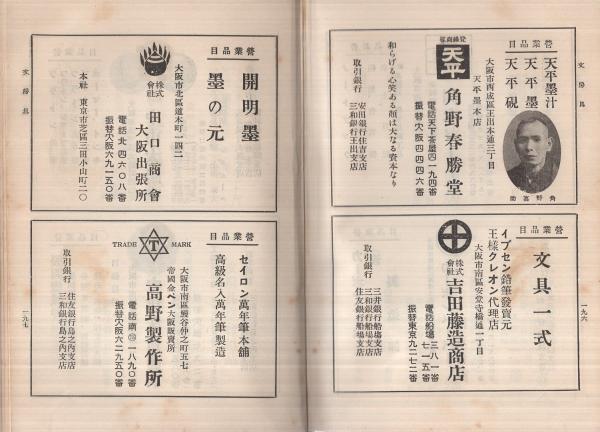 文房具
一九六
營業品目
天平墨汁
天平墨
天平硯
角野喜助
大阪市西成區玉出本通三丁目
天平墨本店
登錄商標
天平
角野春勝堂
電話天下茶屋四一九四番
振替大阪四四四六番
和らげる心笑ある顏は大なる資本なり
取引銀行
安田銀行住吉支店
三和銀行玉出支店
營業品目
文具一式
イプセン鉛筆發賣元
王様クレオン代理店
大阪市南區安堂寺橋通一丁目
株式會社
吉田藤造商店
電話船場
三八一番
七一五番
振替東京九二七二番
取引銀行
三井銀行船場支店
三和銀行船場支店
住友銀行船場支店
營業品目
開明墨
墨の元
大阪市北區道本町一四二
株式會社
田口商會
大阪出張所
電話北四六〇八番
振替大阪六九一五〇番
本社 東京市芝區三田小山町二〇
營業品目
セイロン萬年筆本舖
高級名入萬年筆製造
大阪市南區鰻谷仲之町五七
帝國金ペン大阪販賣所
TRADE T MARK
高野製作所
電話南 一八九〇番
振替大阪六二九五〇番
取引銀行
住友銀行島之內支店
三和銀行島之內支店
文房具
一九七